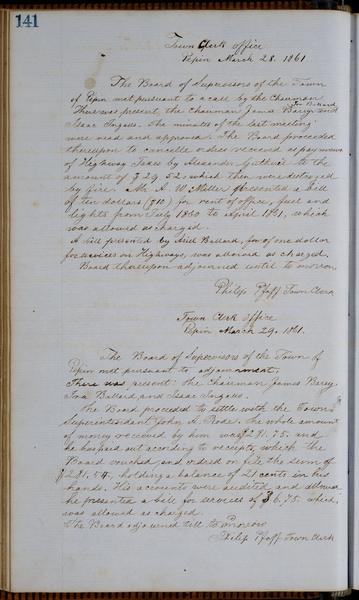 141
Town Clerk office
Pepin March 28. 1861
The Board of Supervisors of the Town
of Pepin met pursuant to a call by the Chairman
There was present the Chairman James Barry Ira Ballard and
Isaac Ingalls. The minutes of the last meeting
were read and approved. The Board proceeded
thereupon to cancelle orders received as payment
of Highway Taxes by Alexander Guthrie to the
amount of $29.52 which then were destroyed
by fire. Mr. A. W Miller presented a bill
of ten dollars ($10) for rent of office, fuel and
lights from July 1860 to April 1861, which
was allowed as charged.
A bill presented by Ariel Ballard, for of one dollar
for services on Highways, was allowed as charged.
Board thereupon adjourned until to morrow
Philip Pfaff Town Clerk
Town Clerk office
Pepin March 29. 1861.
The Board of Supervisors of the Town of
Pepin met pursuant to adjournment.
There was present: the Chairman James Barry.
Ira Ballard and Isaac Ingalls.
The Board proceded to settle with the Town
Superintendant John A. Rode. the whole amount
of money received by him was $281.75. and
he has paid out according to receipts, which the
Board vouched and ordered on file the sum of
$281.54. holding a balance of 21 cent in his
hands. His accounts were audited and allowed
he presented a bill for services of $6.75. which
was allowed as charged.
The Board adjourned till to morrow
Philip Pfaff Town Clerk